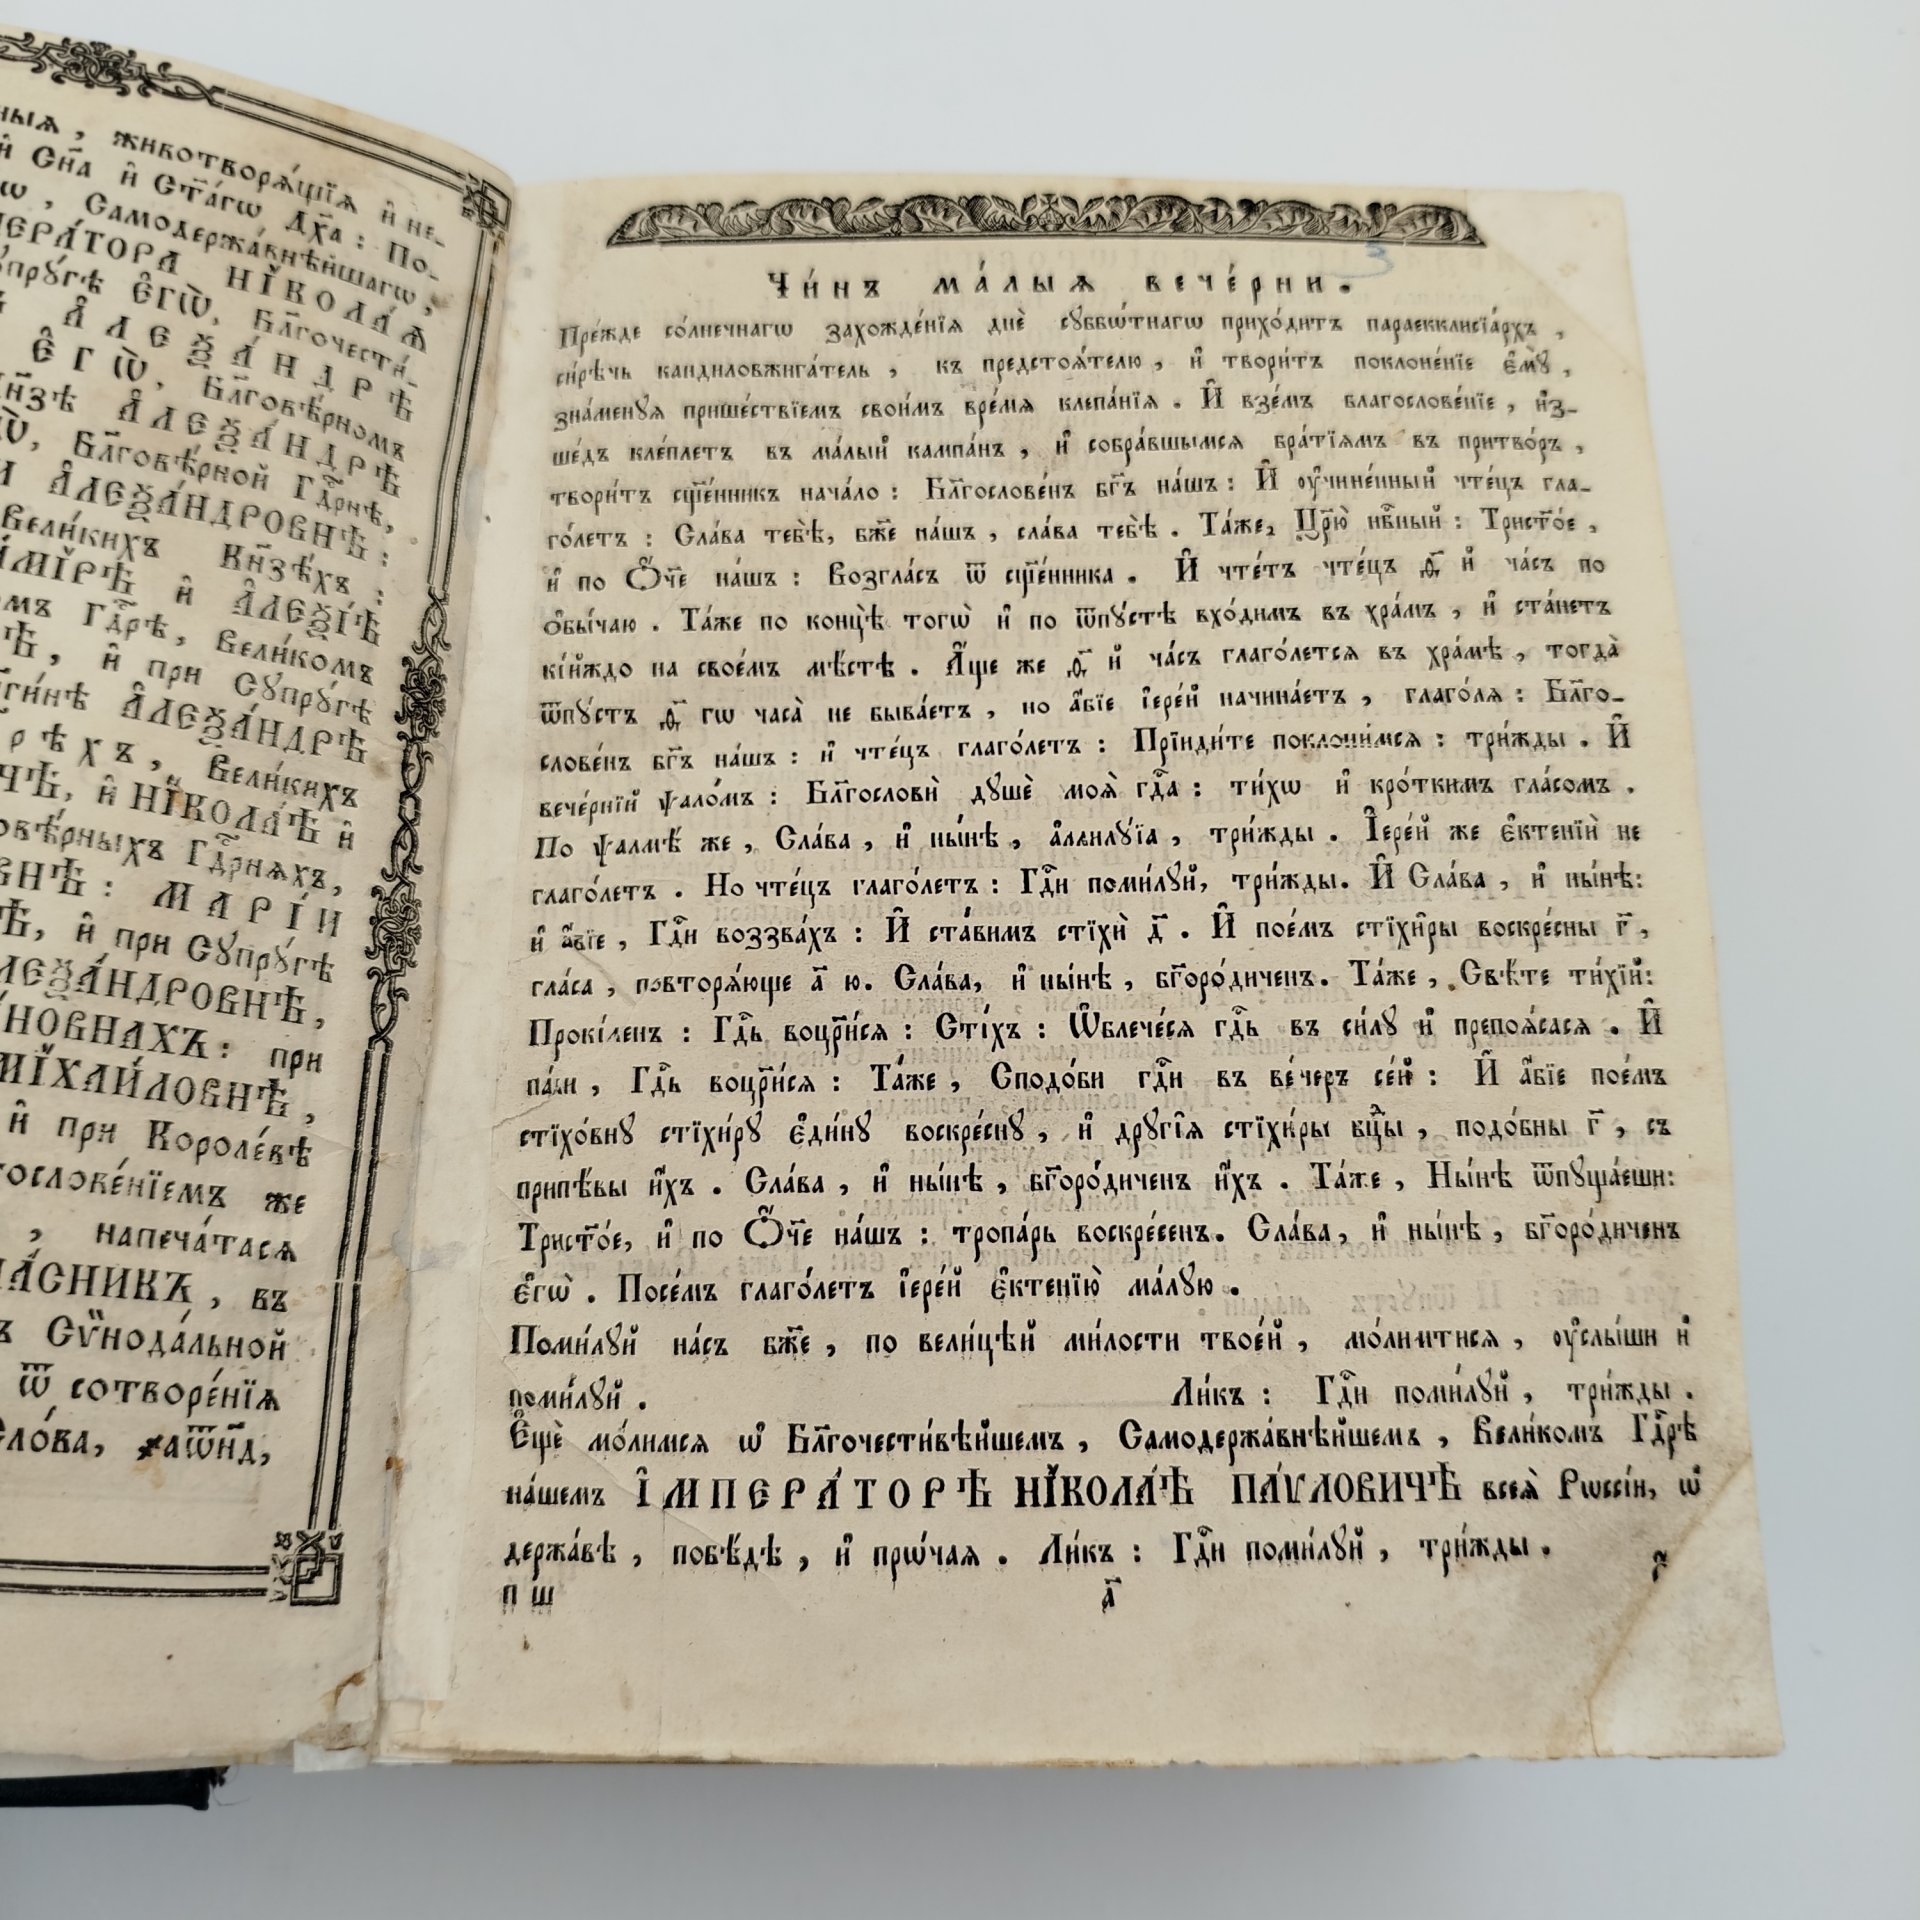 ныѧ, животворѧ́щїѧ и҆ не-
и҆ Сн҃а и҆ Ст҃а́гѡ Дх҃а: По-
Самодержа́внѣйшагѡ,
НІКОЛА́Ѧ
пру́гѣ Є҆гѡ̀, Бл҃гочести́-
А҆ЛЕѮА́НДРѢ
Є҆гѡ̀, Бл҃говѣ́рномъ
Кн҃зѣ А҆ЛЕѮА́НДРѢ
Бл҃говѣ́рной Гдⷭ҇рнѣ,
А҆ЛЕѮА́НДРОВНѢ:
Вели́кихъ Кнѧ҃зѣхъ:
И҆ А҆ЛЕѮІ́Ѣ
Гдⷭ҇рѣ, Вели́комъ
и҆ при Сꙋпрꙋ́гѣ
А҆ЛЕѮА́НДРѢ
Вели́кихъ
и҆ НІКОЛА́Ѣ и҆
Гдⷭ҇рнѧхъ,
МАРІ́И
и҆ при Сꙋпрꙋ́гѣ
А҆ЛЕѮА́НДРОВНѢ,
при
МІХАИ́ЛОВНѢ,
и҆ при Короле́вѣ
же
, напеча́тасѧ
въ
Сѵ̈нода́льной
ѿ сотворе́нїѧ
Сло́ва,
Чи́нъ ма́лыѧ вече́рни.
Пре́жде со́лнечнагѡ захожде́нїѧ днѐ сꙋббѡ́тнагѡ прихо́дитъ параекклисїа́рхъ,
си́рѣчь кандиловжига́тель, къ предстоѧ́телю, и҆ твори́тъ поклоне́нїе є҆мꙋ̀,
зна́менꙋѧ прише́ствїемъ свои́мъ вре́мѧ клепа́нїѧ. И҆ взе́мъ благослове́нїе, и҆з-
ше́дъ кле́плетъ въ ма́лый кампа́нъ, и҆ собра́вшымсѧ бра́тїѧмъ въ притво́ръ,
твори́тъ сщ҃е́нникъ нача́ло: Бл҃гослове́нъ бг҃ъ на́шъ: И҆ ᲂу҆чине́нный чте́цъ гла-
го́летъ: Сла́ва тебѣ̀, бж҃е на́шъ, сла́ва тебѣ̀. Та́же, Цр҃ю̀ нбⷭ҇ный: Трист҃о́е,
и҆ по Ѻ҆́ч҃е на́шъ: Возгла́съ ѿ сщ҃е́нника. И҆ чте́тъ чте́цъ ѳ҃ й ча́съ по
ѻ҆бы́чаю. Та́же по концѣ̀ тогѡ̀ и҆ по ѿпꙋ́стѣ вхо́димъ въ хра́мъ, и҆ ста́нетъ
кі́йждо на свое́мъ мѣ́стѣ. А҆́ще же ѳ҃ й ча́съ глаго́летсѧ въ хра́мѣ, тогда̀
ѿпꙋстъ ѳ҃ гѡ часа̀ не быва́етъ, но а҆́бїе і҆ере́й начина́етъ, глаго́лѧ: Бл҃го-
слове́нъ бг҃ъ на́шъ: и҆ чте́цъ глаго́летъ: Прїиди́те поклони́мсѧ: три́жды. И҆
вече́рнїй ѱало́мъ: Бл҃гословѝ дꙋшѐ моѧ̀ гдⷭ҇а: ти́хѡ и҆ кро́ткимъ гла́сомъ.
По ѱалмѣ́ же, Сла́ва, и҆ ны́нѣ, а҆ллилꙋ́їа, три́жды. І҆ере́й же є҆ктенїѝ не
глаго́летъ. Но чте́цъ глаго́летъ: Гдⷭ҇и поми́лꙋй, три́жды. И҆ Сла́ва, и҆ ны́нѣ:
и҆ а҆́бїе, Гдⷭ҇и воззва́хъ: И҆ ста́вимъ стїхѝ д҃. И҆ пое́мъ стїхи̑ры воскрⷭ҇ны г҃,
гла́са, повторѧ́юще а҃ ю. Сла́ва, и҆ ны́нѣ, бг҃оро́диченъ. Та́же, Свѣ́те ти́хїй:
Прокі́менъ: Гдⷭ҇ь воцр҃и́сѧ: Сті́хъ: Ѡ҆блече́сѧ гдⷭ҇ь въ си́лꙋ и҆ препоѧ́сасѧ. И҆
па́ки, Гдⷭ҇ь воцр҃и́сѧ: Та́же, Сподо́би гдⷭ҇и въ ве́черъ се́й: И҆ а҆́бїе пое́мъ
стїхо́внꙋ стїхи́рꙋ є҆ди́нꙋ воскре́снꙋ, и҆ дрꙋгі̑ѧ стїхи́ры бцⷣы, подо́бны г҃, съ
припѣ́вы и҆́хъ. Сла́ва, и҆ ны́нѣ, бг҃оро́диченъ и҆́хъ. Та́же, Ны́нѣ ѿпꙋща́еши:
Трист҃о́е, и҆ по Ѻ҆́ч҃е на́шъ: тропа́рь воскре́сенъ. Сла́ва, и҆ ны́нѣ, бг҃оро́диченъ
є҆гѡ̀. Посе́мъ глаго́летъ і҆ере́й є҆ктенїю̀ ма́лꙋю.
Поми́лꙋй на́съ бж҃е, по вели́цѣй ми́лости твое́й, мо́лимтисѧ, ᲂу҆слы́ши и҆
поми́лꙋй. Ли́къ: Гдⷭ҇и поми́лꙋй, три́жды.
Є҆щѐ мо́лимсѧ ѡ҆ Бл҃гочести́вѣйшемъ, Самодержа́внѣйшемъ, Вели́комъ Гдⷭ҇рѣ
на́шемъ І҆МПЕРА́ТОРѢ НІКОЛА́Ѣ ПА́ѴЛОВИЧѢ всеѧ̀ Рѡссі́и, ѡ҆
держа́вѣ, побѣ́дѣ, и҆ прѡ́чаѧ. Ли́къ: Гдⷭ҇и поми́лꙋй, три́жды.
п ш а҃